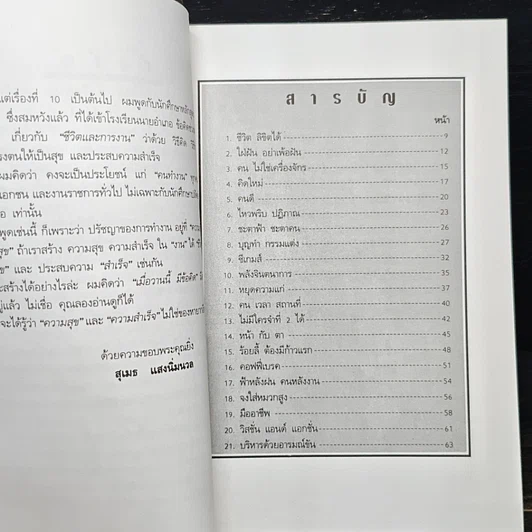 แต่เรื่องที่ 10 เป็นต้นไป ผมพูดกับนักศึกษาหลักสูตร
ซึ่งสมหวังแล้ว ที่ได้เข้าโรงเรียนนายอำเภอ
เกี่ยวกับ “ชีวิตและการงาน” ว่าด้วย วิธีคิด
ตนให้เป็นสุข และประสบความสำเร็จ
ผมคิดว่า คงจะเป็นประโยชน์ แก่ “คนทำงาน”
เอกชน และงานราชการทั่วไป ไม่เฉพาะกับนักศึกษา
เท่านั้น
พูดเช่นนี้ ก็เพราะว่า ปรัชญาของการทำงาน อยู่ที่
ถ้าเราสร้าง ความสุข ความสำเร็จ ใน “งาน” ได้
และ ประสบความ “สำเร็จ” เช่นกัน
สร้างได้อย่างไรล่ะ ผมคิดว่า “เมื่อวานนี้
แล้ว ไม่เชื่อ คุณลองอ่านดูก็ได้
จะได้รู้ว่า “ความสุข” และ “ความสำเร็จ” ไม่ใช่ของ
ด้วยความขอบพระคุณยิ่ง
สุเมธ แสงนิ่มนวล
สารบัญ
หน้า
1. ชีวิต ลิขิตได้ 9
2. ใฝ่ฝัน อย่าเพ้อฝัน 12
3. คน ไม่ใช่เครื่องจักร 15
4. คิดใหม่ 17
5. คนดี 20
6. ไหวพริบ ปฏิภาณ 23
7. ชะตาฟ้า ชะตาคน 26
8. บุญทำ กรรมแต่ง 27
9. ซีเกมส์ 32
10. พลังจินตนาการ 35
11. หยุดความแก่ 37
12. คน เวลา สถานที่ 40
13. ไม่มีใครจำที่ 2 ได้ 42
14. หน้า กับ ตา 45
15. ร้อยลี้ ต้องมีก้าวแรก 48
16. คอฟฟี่เบรค 51
17. ฟ้าหลังฝน คนหลังงาน 54
18. จงใส่หมวกสูง 56
19. มืออาชีพ 58
20. วิสชั่น แอนด์ แอกชั่น 61
21. บริหารด้วยอารมณ์ขัน 63